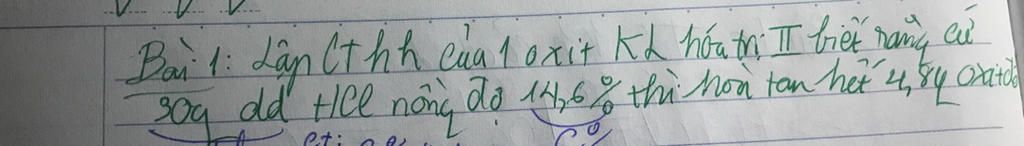 Bài 1: Lập CT hh của 1 oxit KL hóa trị II biết rằng cứ
30g dd HCl nồng độ 14,6% thì hoà tan hết 4,8g oxit đó